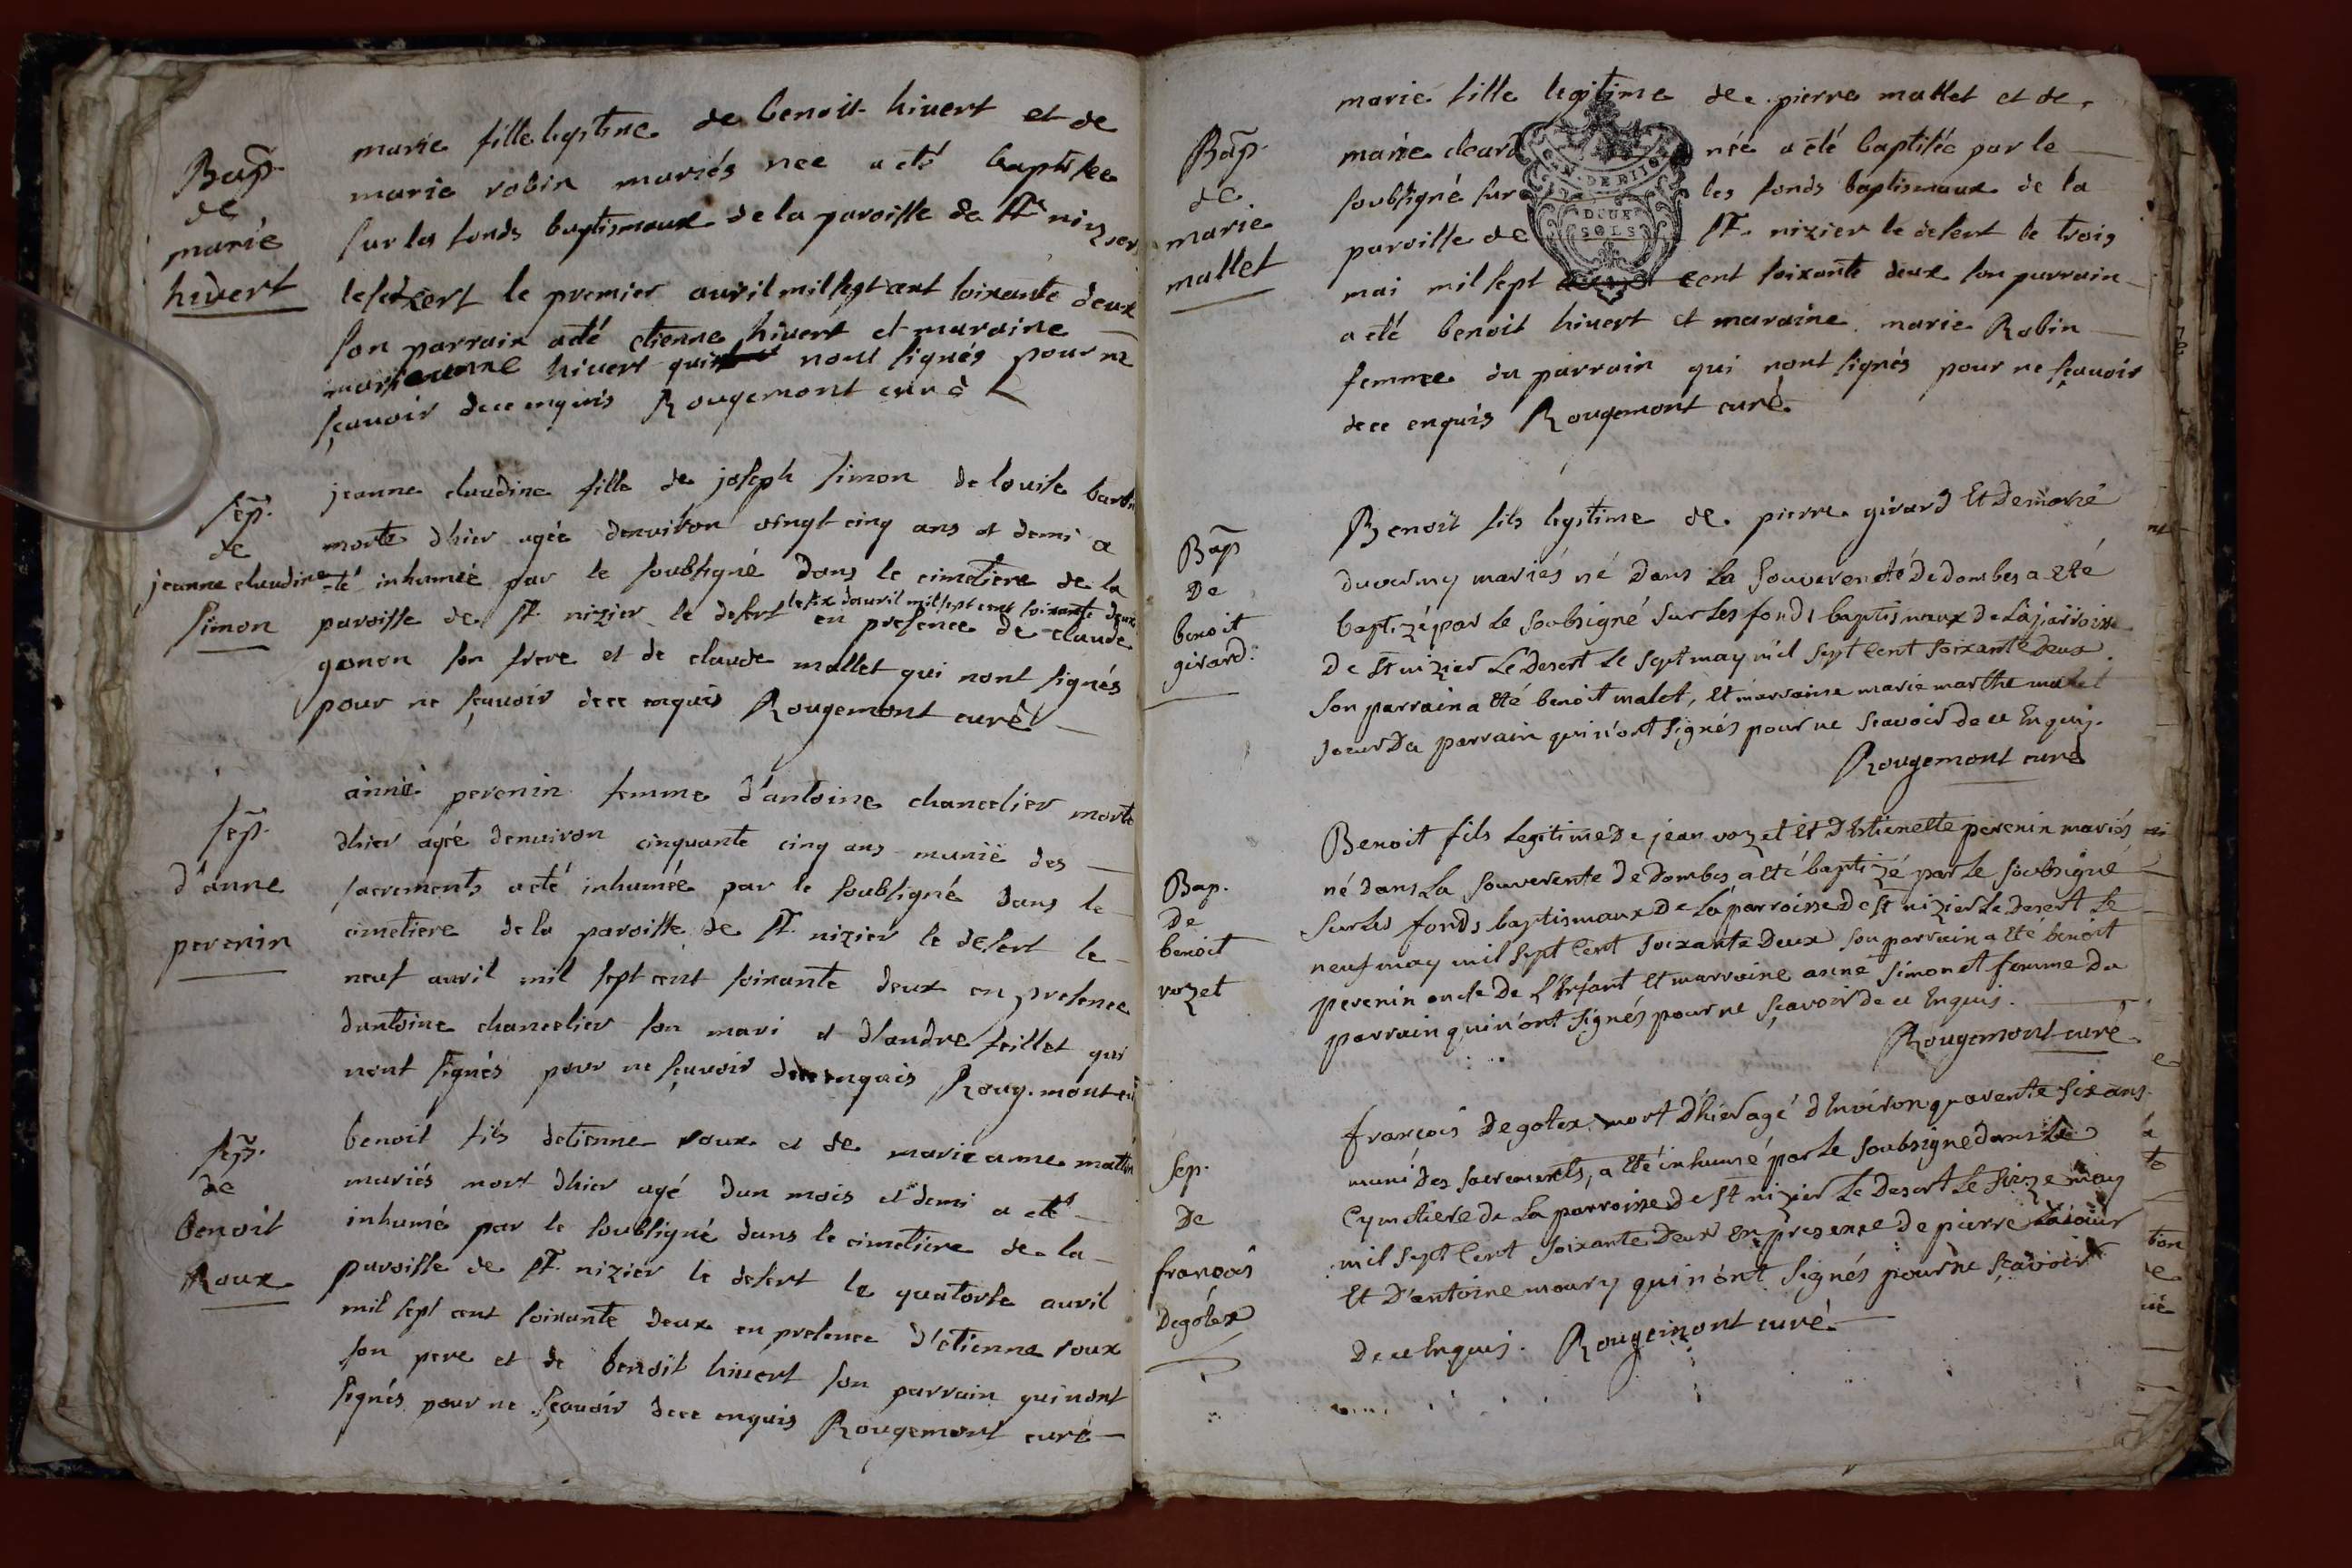 Bap.
de
marie
hivert
marie fille legitime de benoit hivert et de
marie robin mariés nee a eté baptisee
sur les fonds baptismaux de la paroisse de st nizier
le desert le premier avril mil sept cent soixante deux
son parrain a eté etienne hivert et maraine
marieanne hivert qui nont signés pour ne
sçavoir de ce enquis Rougemont curé
sep.
de
jeanne claudine
simon
jeanne claudine fille de joseph simon de louise
morte dhier agée denviron vingt cinq ans et demi a
eté inhumée par le soubsigné dans le cimetiere de la
paroisse de st nizier le desert le six davril mil sept cent soixante deux en presence de claude
genon son frere et de claude mallet qui nont signés
pour ne sçavoir de ce enquis Rougemont curé
sep.
d'anne
perenin
anne perenin femme d'antoine chancelier morte
dhier agée denviron cinquante cinq ans munie des
sacrements a eté inhumée par le soubsigné dans le
cimetiere de la paroisse de st nizier le desert le
neuf avril mil sept cent soixante deux en presence
dantoine chancelier son mari et d'andre feillet qui
nont signés pour ne sçavoir de ce enquis Rougemont
sep.
de
Benoit
Roux
benoit fils detienne roux et de marie anne
mariés mort dhier agé dun mois et demi a eté
inhumé par le soubsigné dans le cimetiere de la
paroisse de st nizier le desert le quatorse avril
mil sept cent soixante deux en presence d'etienne roux
son pere et de benoit hivert son parrain qui nont
signés pour ne sçavoir de ce enquis Rougemont curé
Bap.
de
marie
mallet
marie fille legitime de pierre mallet et de
marie née a eté baptisée par le
soubsigné sur les fonds baptismaux de la
DEUX
SOLS
paroisse de st nizier le desert le trois
mai mil sept cent soixante deux son parrain
a eté benoit hivert et maraine marie Robin
femme du parrain qui nont signés pour ne sçavoir
de ce enquis Rougemont curé
Bap
De
benoit
girard.
Benoit fils legitime de pierre girard Et De marie
duverny mariés né dans La Souvereneté De dombes a Eté
baptizé par Le soubsigné sur Les fonds baptismaux De La parroisse
De St nizier Le Desert Le sept may mil sept Cent soixante Deux
son parrain a Eté benoit malet, Et marraine marie marthe malet
soeur Du parrain qui n'ont signés pour ne scavoir de ce Enquis.
Rougemont curé
Bap.
De
benoit
vozet
Benoit fils Legitime De jean vozet Et D'Estienette perenin mariés
né dans La souvereneté De Dombes a Eté baptizé par Le soubsigné
sur Les fonds baptismaux De La parroisse De st nizier Le Desert Le
neuf may mil sept Cent soixante Deux son parrain a Eté benoit
perenin oncle De L'Enfant Et marraine anne simonet femme Du
parrain qui n'ont signés pour ne sçavoir De ce Enquis.
Rougemont curé
sep.
De
françois
Degotex
françois Degotex mort D'hier agé d'Environ quarente six ans
muni Des sacrements, a Eté inhumé par Le soubsigné dans Le
Cymetiere De La parroisse De St nizier Le Desert Le seize may
mil sept Cent soixante Deux En presence De pierre
Et D'antoine maury qui n'ont signés pour ne sçavoir
De ce Enquis. Rougemont curé